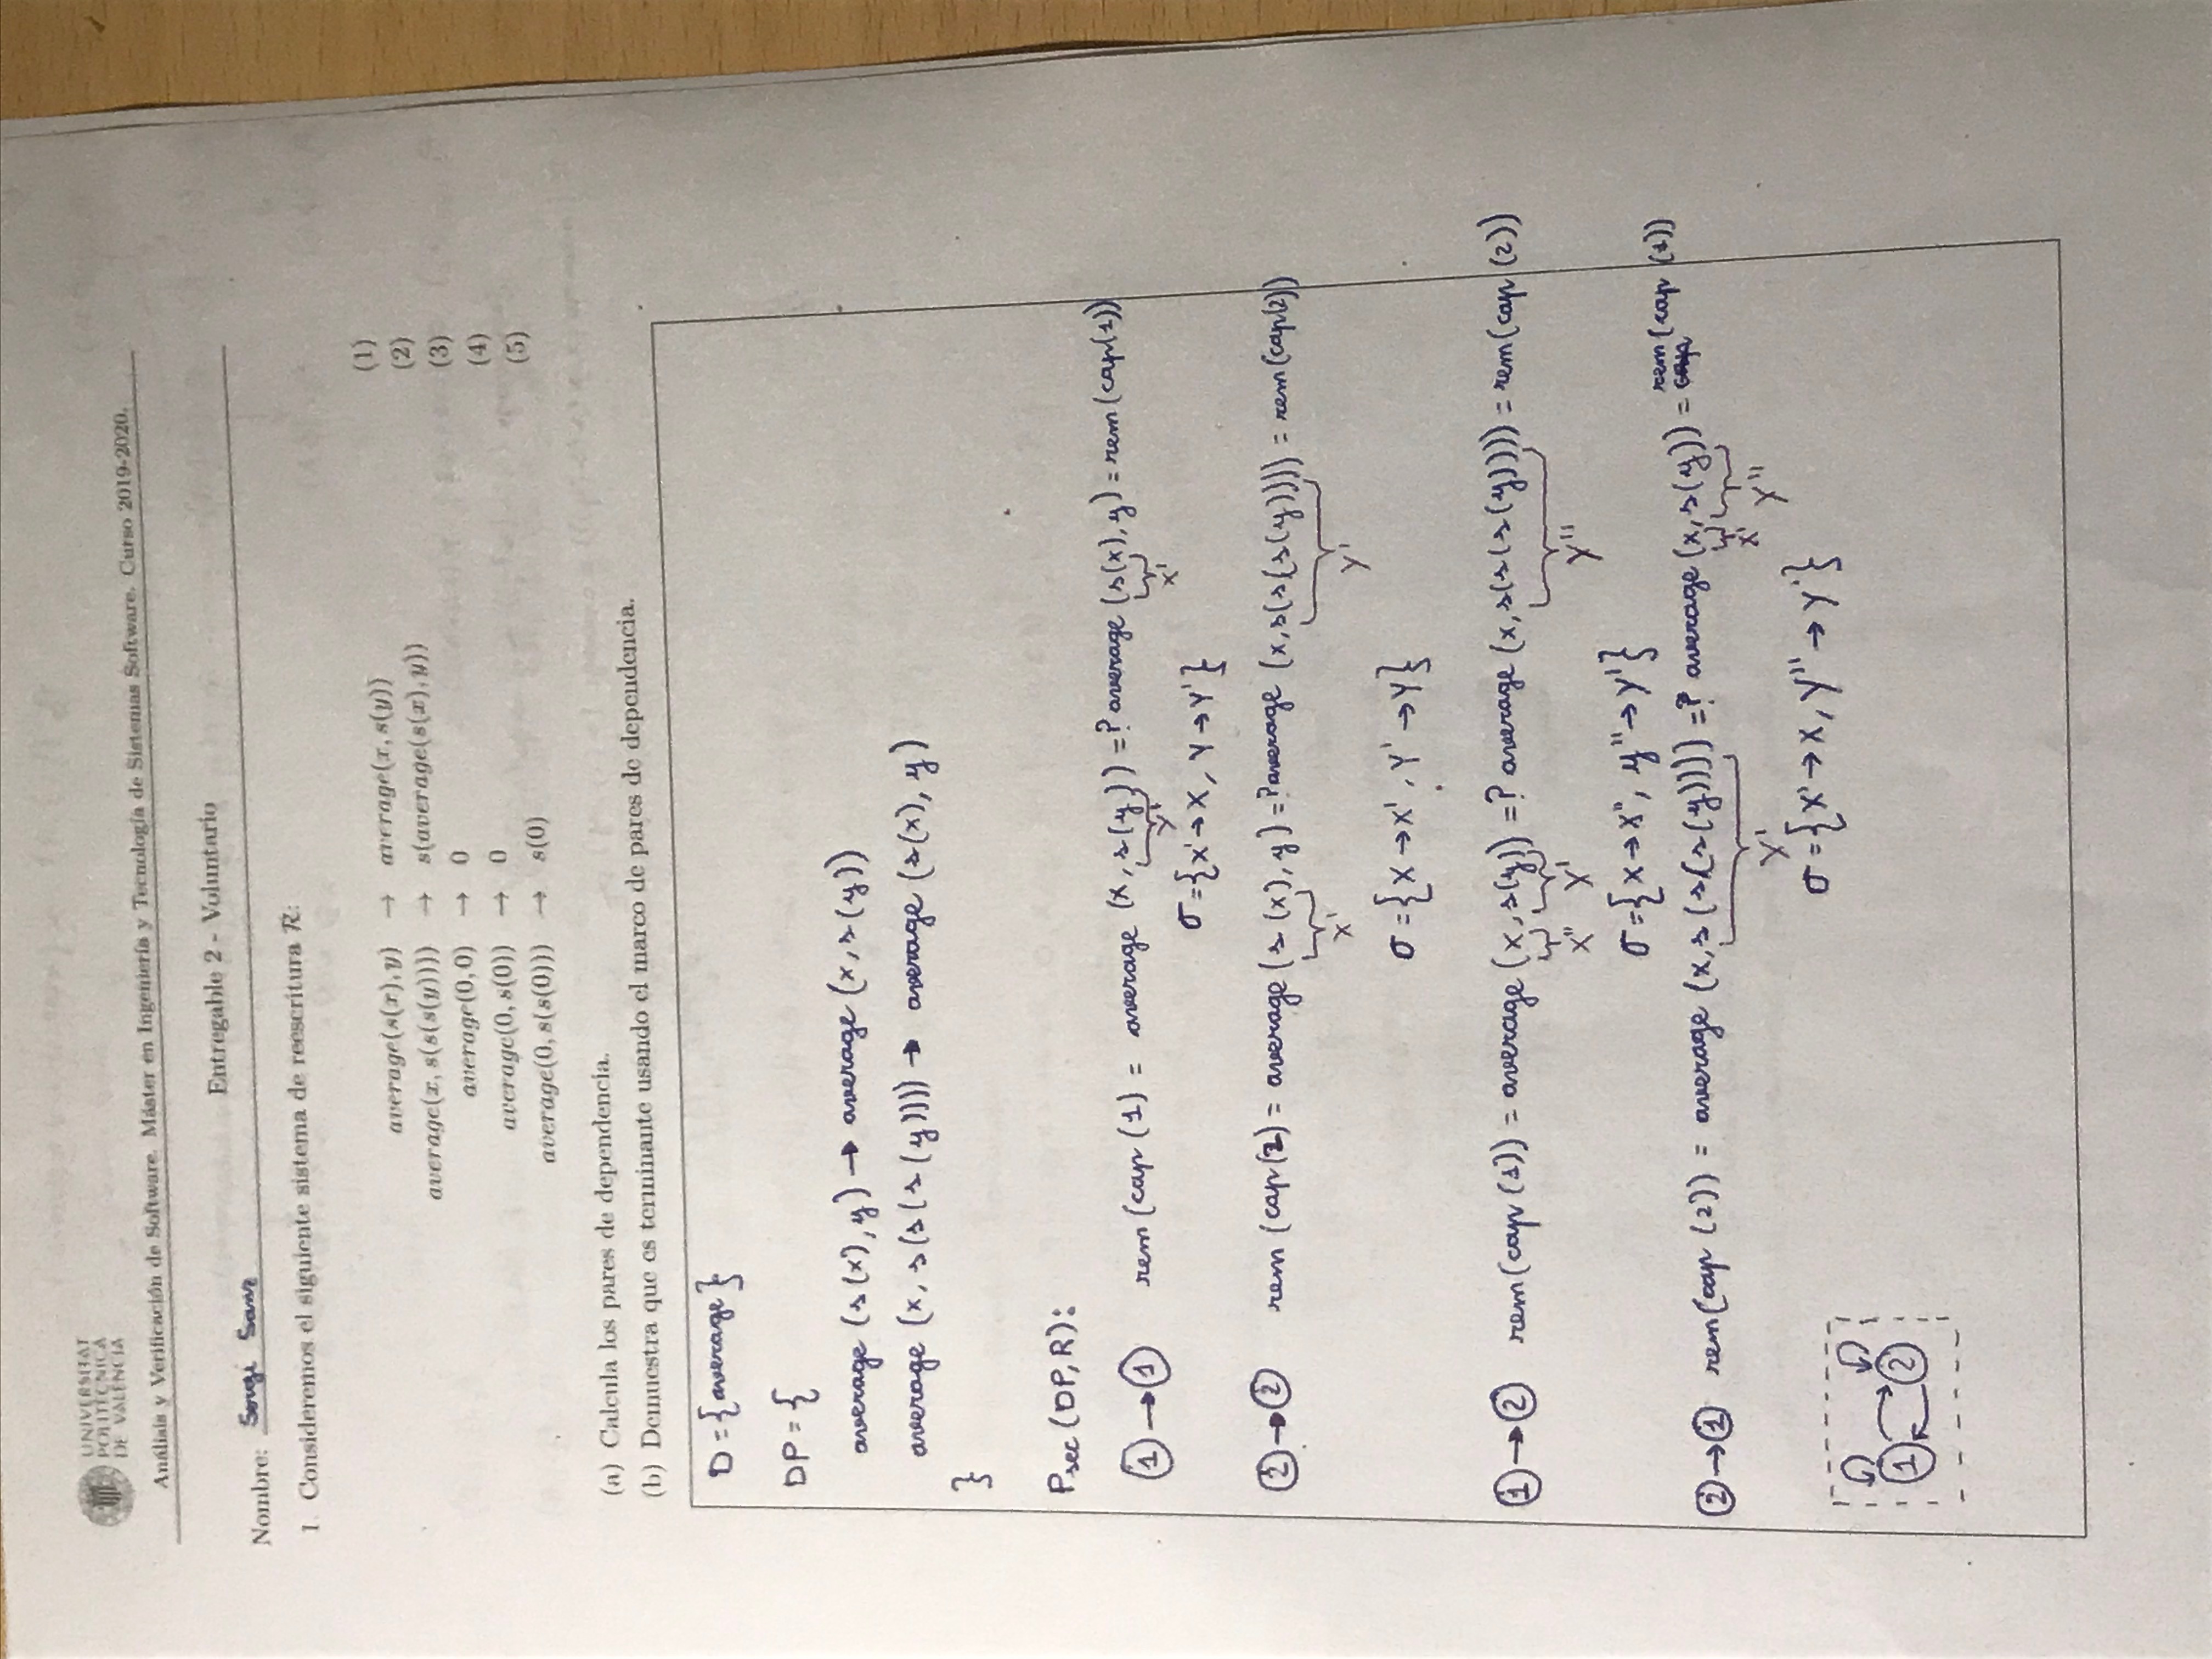 UNIVERSITAT
POLITÈCNICA
DE VALÈNCIA
Análisis y Verificación de Software. Máster en Ingeniería y Tecnología de Sistemas Software. Curso 2019-2020.
Entregable 2 - Voluntario
Nombre: Sergi Sanz
1. Consideremos el siguiente sistema de reescritura R:
average(s(x), y) → average(x, s(y)) (1)
average(x, s(s(s(y)))) → s(average(s(x), y)) (2)
average(0, 0) → 0 (3)
average(0, s(0)) → 0 (4)
average(0, s(s(0))) → s(0) (5)
(a) Calcula los pares de dependencia.
(b) Demuestra que es terminante usando el marco de pares de dependencia.
D = {average}
DP = {
average (s(x), y) → average (x, s(y))
average (x, s(s(s(y)))) → average (s(x), y)
}
Psec (DP, R):
① → ① rem (cap (1) = average (x, s(y)) =? average (s(x), y) = rem (cap(1))
y' x'
σ = {x' → x, y → y'}
② → ② rem (cap(2) = average (s (x), y) =? average (x, s(s(s(y)))) = rem (cap(2))
x' y'
σ = {x → x', y' → y}
① → ② rem (cap (1)) = average (x, s(y)) =? average (x, s(s(s(y)))) = rem (cap (2))
x'' y' y''
σ = {x → x'', y'' → y'}
② → ① rem (cap (2)) = average (x, s (s(s(y)))) =? average (x, s(y)) = rem (cap (1))
y' x' y''
σ = {x' → x, y'' → y'}
1 2